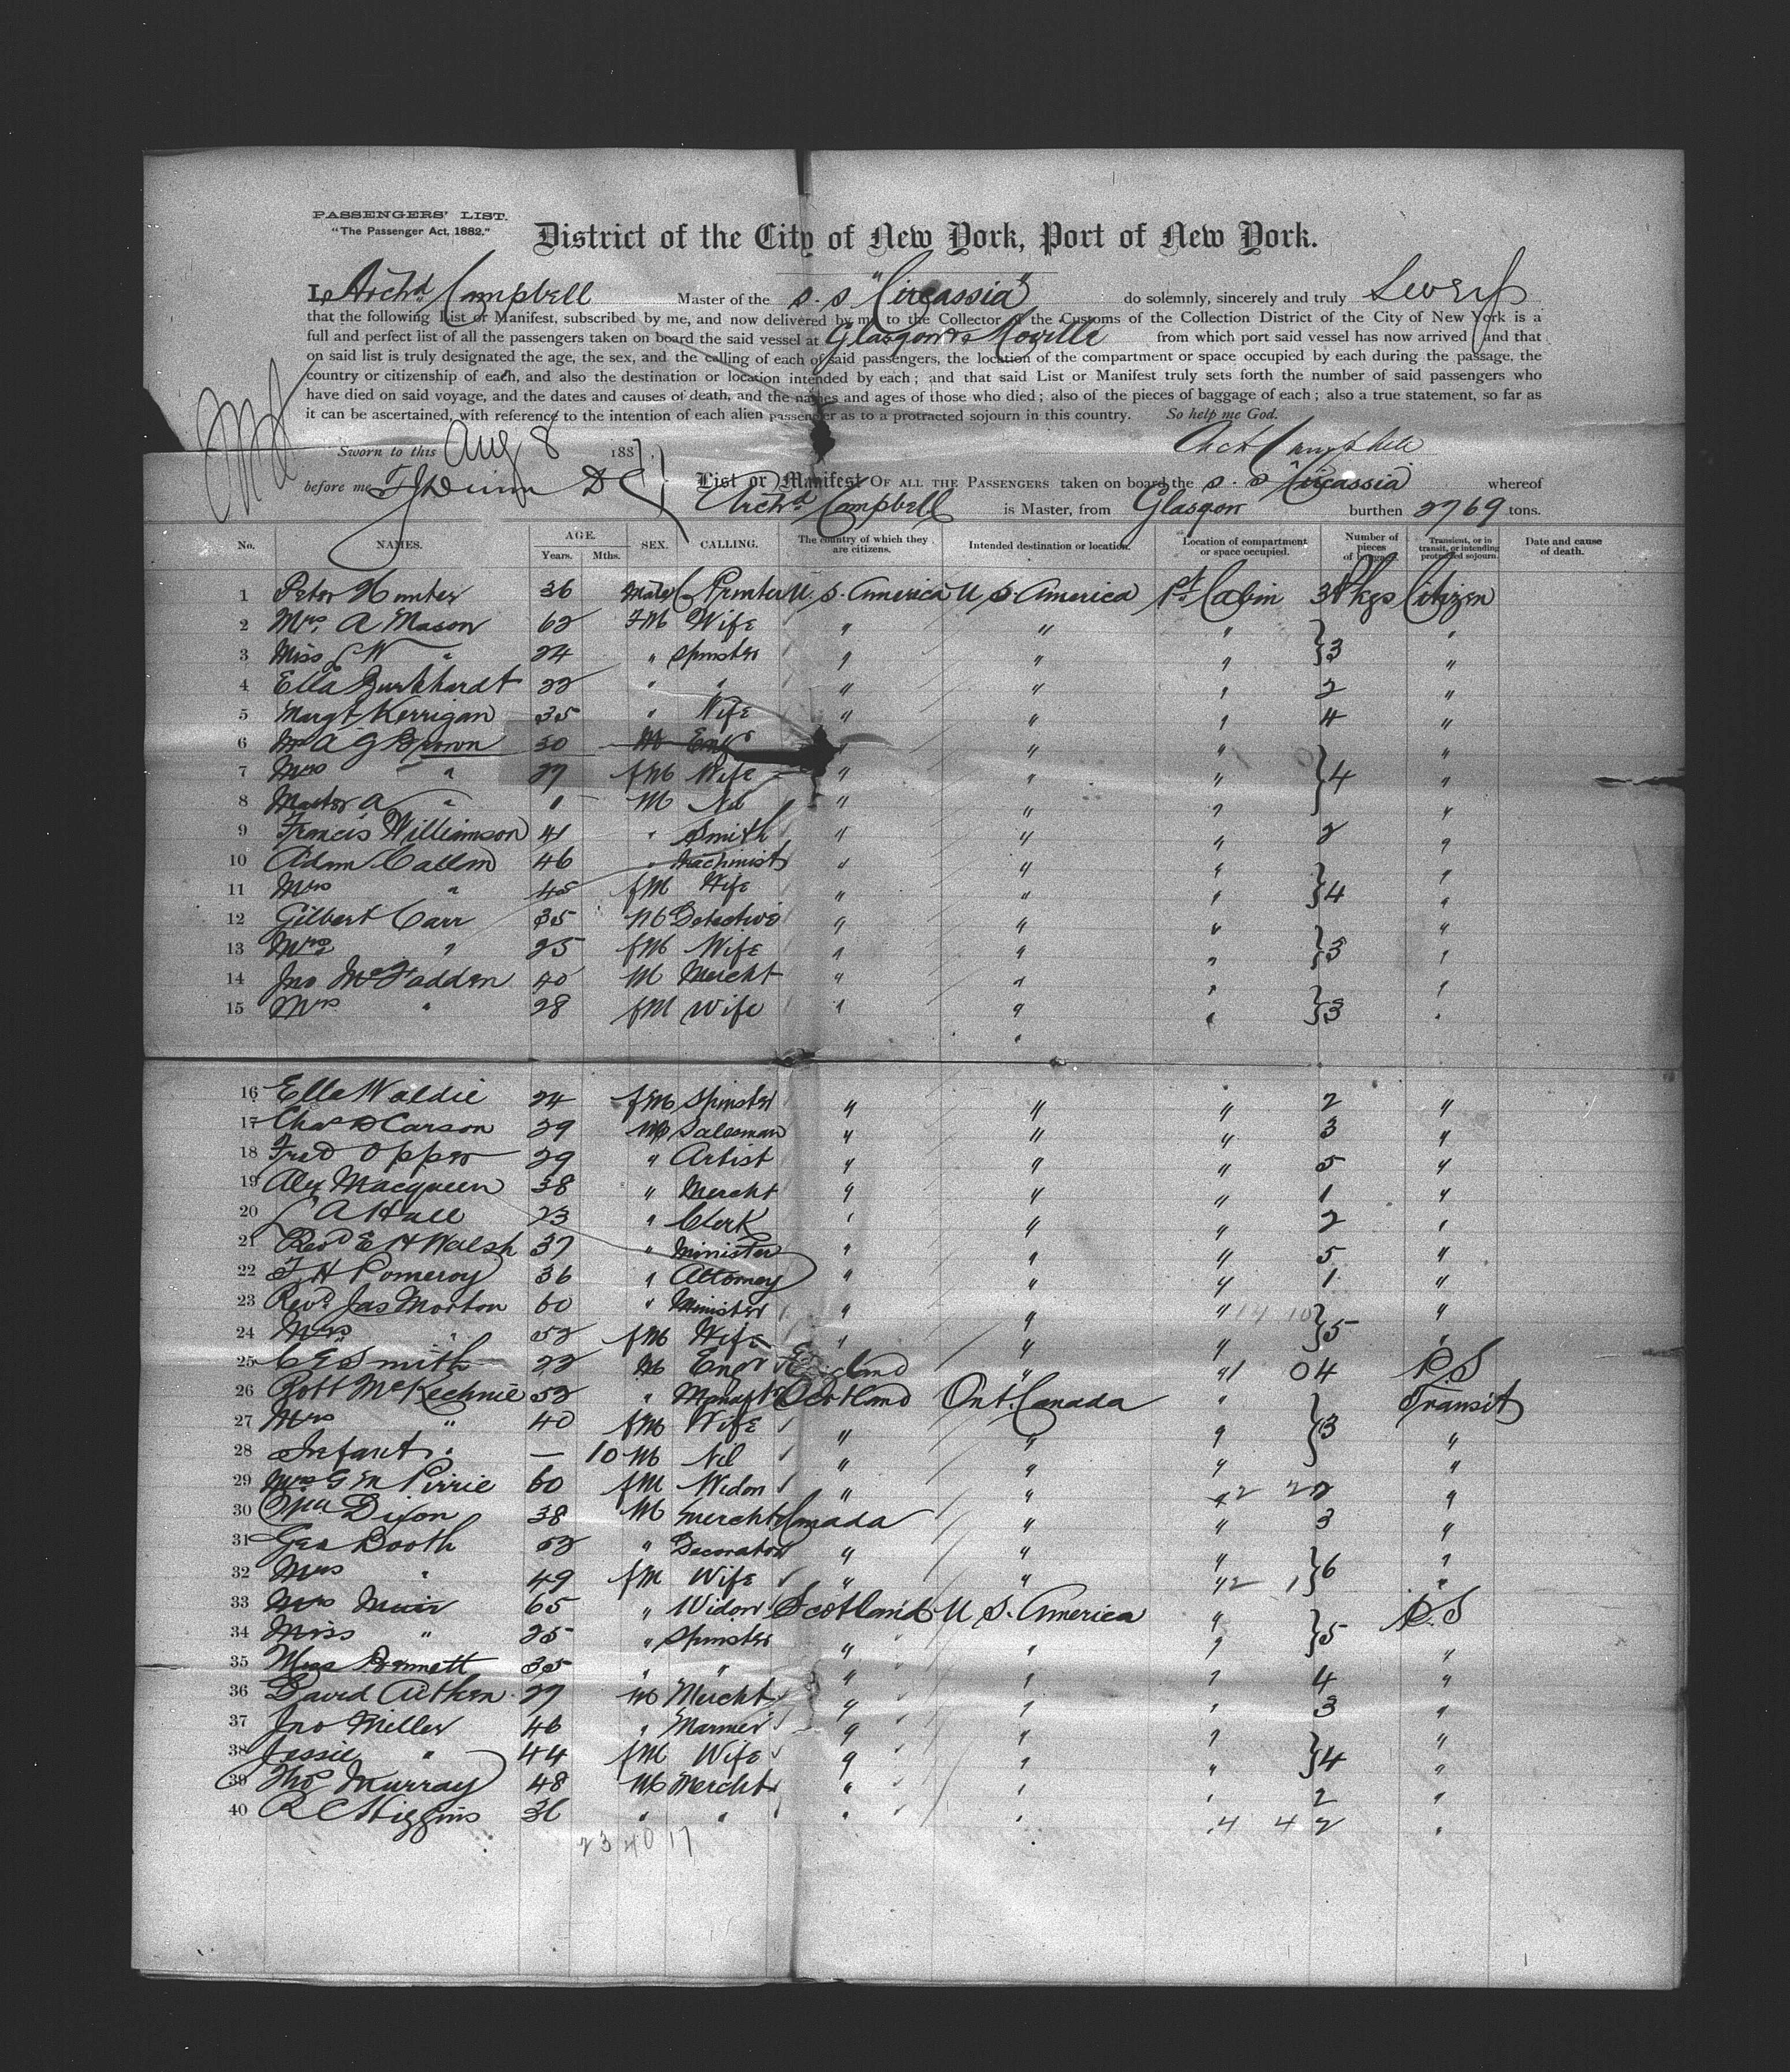 PASSENGERS' LIST.
"The Passenger Act, 1882."
District of the City of New York, Port of New York.
I, Archd. Campbell Master of the S.S. "Circassia" do solemnly, sincerely and truly Swear
that the following List or Manifest, subscribed by me, and now delivered by me to the Collector of the Customs of the Collection District of the City of New York is a
full and perfect list of all the passengers taken on board the said vessel at Glasgow & Moville from which port said vessel has now arrived; and that
on said list is truly designated the age, the sex, and the calling of each of said passengers, the location of the compartment or space occupied by each during the passage, the
country or citizenship of each, and also the destination or location intended by each; and that said List or Manifest truly sets forth the number of said passengers who
have died on said voyage, and the dates and causes of death, and the names and ages of those who died; also of the pieces of baggage of each; also a true statement, so far as
it can be ascertained, with reference to the intention of each alien passenger as to a protracted sojourn in this country. So help me God.
Arch Campbell
Sworn to this Aug 8 1887.
before me
List or Manifest OF ALL THE PASSENGERS taken on board the S.S. "Circassia" whereof
Archd. Campbell is Master, from Glasgow burthen 2769 tons.
No. NAMES. AGE. Years. Mths. SEX. CALLING. The country of which they are citizens. Intended destination or location. Location of compartment or space occupied. Number of pieces of baggage. Transient, or in transit, or intending protracted sojourn. Date and cause of death.
1 Peter Hunter 36 Male C Printer U.S. America U S. America 1st Cabin 3 Pkgs Citizen
2 Mrs. A Mason 62 FM Wife " " " "
3 Miss C W " 24 " Spinster " " " }3 "
4 Ella Burkhardt 22 " " " " " 2 "
5 Margt Kerrigan 35 " Wife " " " 4 "
6 Mr A G Brown 30 M Engr " " " "
7 Mrs " 27 fM Wife " " " }4 "
8 Master A " 1 M Nil " " " "
9 Francis Williamson 41 " Smith " " " 2 "
10 Adam Callom 46 " Machinist " " " "
11 Mrs " 45 fM Wife " " " }4 "
12 Gilbert Carr 35 M Detective " " " "
13 Mrs " 25 fM Wife " " " }3 "
14 Jno McFadden 40 M Mercht " " " "
15 Mrs " 28 fM Wife " " " }3 "
16 Ella Waldie 24 fM Spinster " " " 2 "
17 Chas D Carson 29 M Salesman " " " 3 "
18 Fred Opper 29 " Artist " " " 5 "
19 Alex Macqueen 38 " Mercht " " " 1 "
20 C A Hall 23 " Clerk " " " 2 "
21 Revd E H Walsh 37 " Minister " " " 5 "
22 F. H Pomeroy 36 " Attorney " " " 1 "
23 Revd. Jas Morton 60 " Minister " " " 14 10 "
24 Mrs " 52 fM Wife " " " }5 "
25 C E Smith 22 M Engr England " " 1 0 4 P.S
26 Robt McKechnie 52 " Manufr Scotland Ont. Canada " Transit
27 Mrs " 40 fM Wife " " " }3 "
28 Infant " — 10 M Nil " " " "
29 Mrs G M Pirrie 60 fM Widow " " " 2 2 2 "
30 Wm. Dixon 38 M Mercht Canada " " 3 "
31 Geo Booth 52 " Decorator " " " "
32 Mrs " 49 fM Wife " " " 2 1 }6 "
33 Mrs Muir 65 " Widow Scotland U S. America " P.S
34 Miss " 25 " Spinster " " " }5 "
35 Miss Bennett 35 " " " " " 4 "
36 David Aitken 27 M Mercht " " " 3 "
37 Jno Miller 46 " Mariner " " " "
38 Jessie " 44 fM Wife " " " }4 "
39 Thos Murray 48 M Mercht " " " 2 "
40 R C Higgins 36 " " " " " 4 4 2 "
23 40 17